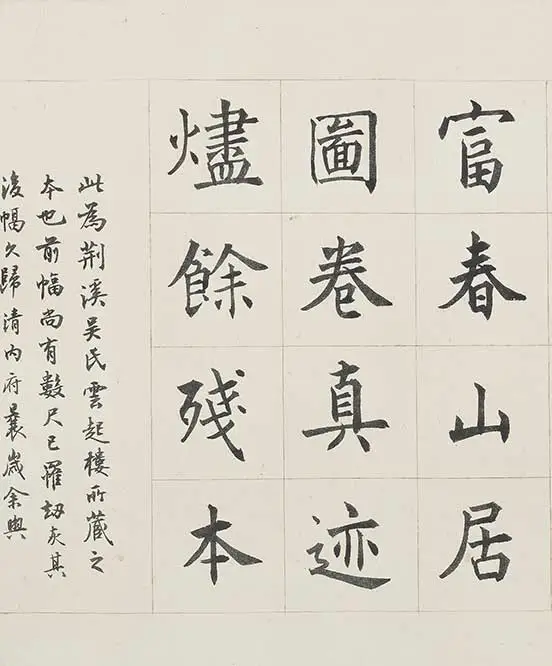 富春山居
圖卷真迹
燼餘殘本
此為荆溪吳氏雲起樓所藏之
本也前幅尚有數尺已罹劫灰其
後幅久歸清内府曩歲余與